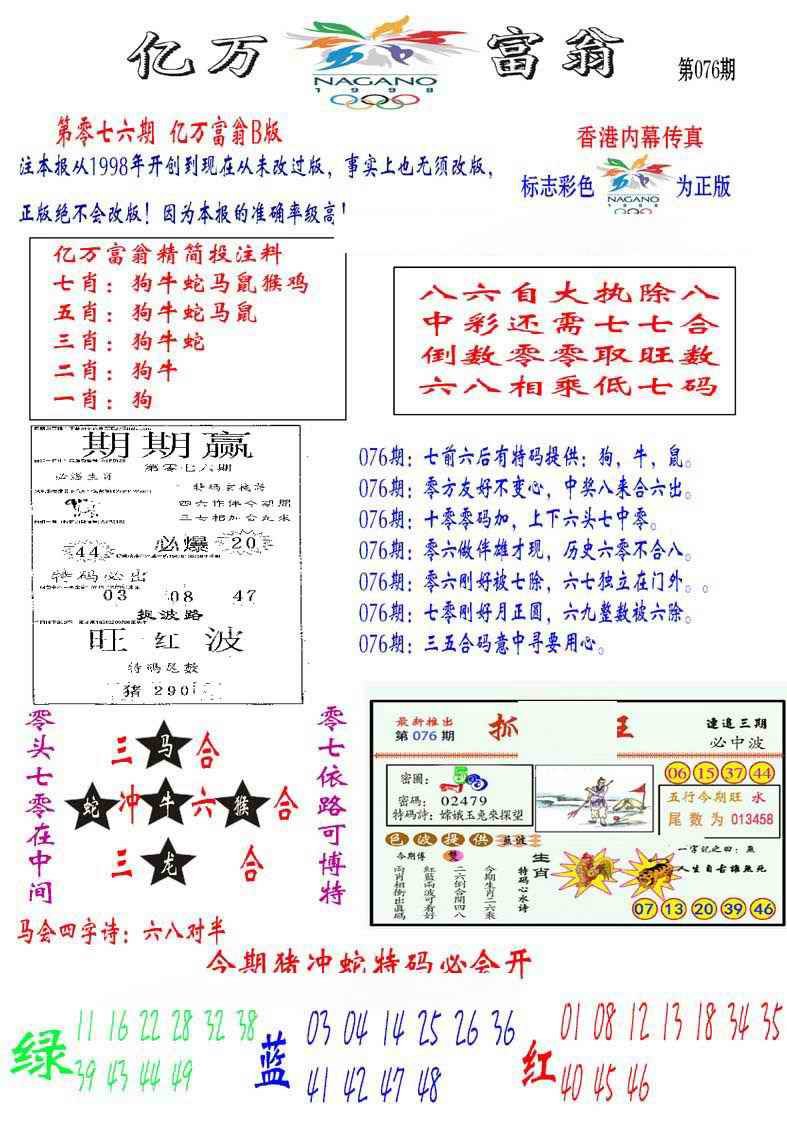 亿万
富翁
NAGANO
1998
第076期
第零七六期 亿万富翁B版
注本报从1998年开创到现在从未改过版，事实上也无须改版，
正版绝不会改版！因为本报的准确率级高！
香港内幕传真
标志彩色
NAGANO
1998
为正版
亿万富翁精简投注料
七肖：狗牛蛇马鼠猴鸡
五肖：狗牛蛇马鼠
三肖：狗牛蛇
二肖：狗牛
一肖：狗
八六自大执除八
中彩还需七七合
倒数零零取旺数
六八相乘低七码
期期赢
第零七六期
必遇生肖
特码玄机诗
四六作伴今期开
三七相加合九来
44
必爆
20
特码必出
03 08 47
捉波路
旺 红 波
特码尾数
猪 290
076期：七前六后有特码提供：狗，牛，鼠。
076期：零方友好不变心，中奖八来合六出。
076期：十零零码加，上下六头七中零。
076期：零六做伴雄才现，历史六零不合八。
076期：零六刚好被七除，六七独立在门外。。
076期：七零刚好月正圆，六九整数被六除。
076期：三五合码意中寻要用心。
零头七零在中间
三 马 合
蛇 冲 牛 六 猴 合
三 龙 合
零七依路可博特
最新推出
第076期
抓
王
连追三期
必中波
密圖：
密碼： 02479
特码詩：嫦娥玉兔來探望
06 15 37 44
五行今期旺 水
尾数为 013458
色波提供 蓝波
今期博 雙
两肖相衝出真码
紅藍兩波可看好
二六倒合開四八
今期生肖二六乘
特码心水诗
生肖
一字记之曰：無
人生自古誰無死
07 13 20 39 46
马会四字诗：六八对半
今期猪冲蛇特码必会开
绿
11 16 22 28 32 38
39 43 44 49
蓝
03 04 14 25 26 36
41 42 47 48
红
01 08 12 13 18 34 35
40 45 46